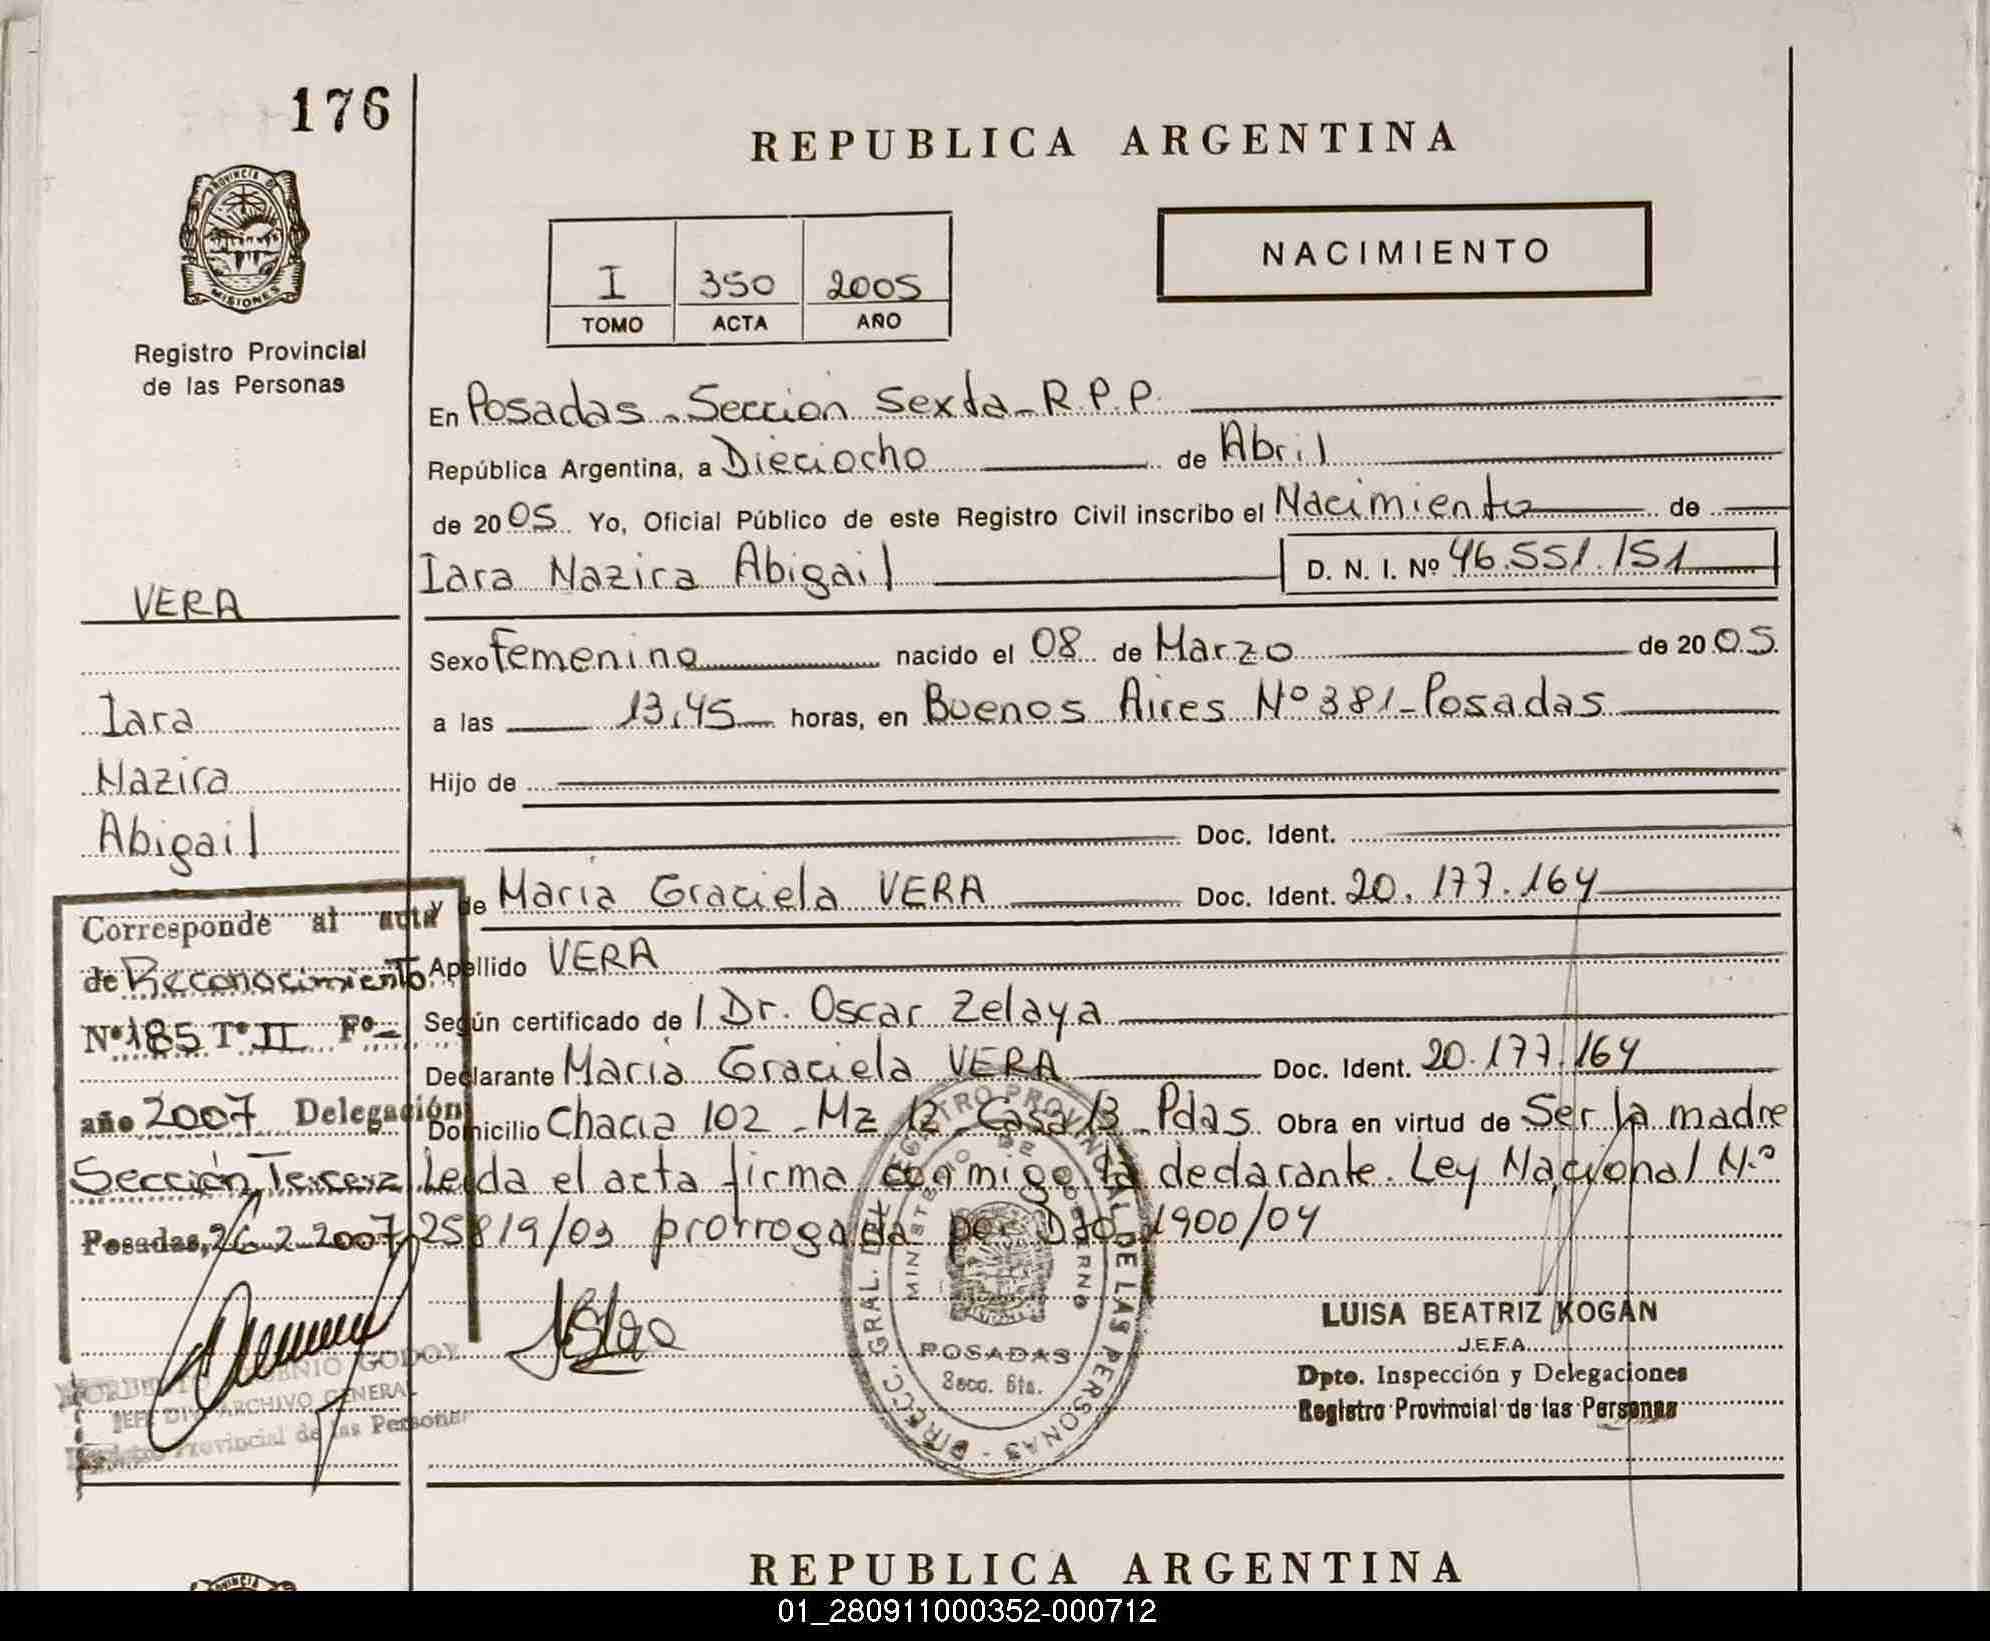 176
REPUBLICA ARGENTINA
PROVINCIA DE
MISIONES
Registro Provincial
de las Personas
I 350 2005
TOMO ACTA AÑO
NACIMIENTO
En Posadas - Sección Sexta - R.P.P.
República Argentina, a Dieciocho de Abril
de 2005 Yo, Oficial Público de este Registro Civil inscribo el Nacimiento de
Iara Nazira Abigail D. N. I. Nº 46.551.151
VERA
Iara
Nazira
Abigail
Sexo Femenino nacido el 08 de Marzo de 2005
a las 13,45 horas, en Buenos Aires Nº 381 - Posadas
Hijo de
Doc. Ident.
y de Maria Graciela VERA Doc. Ident. 20.177.164
Apellido VERA
Según certificado de / Dr. Oscar Zelaya
Declarante Maria Graciela VERA Doc. Ident. 20.177.164
Domicilio Chacra 102 - Mz 12 - Casa 13 - Pdas. Obra en virtud de Ser la madre
Leida el acta firma conmigo la declarante. Ley Nacional N.º
25819/03 prorrogada por Dto. 1900/04
Corresponde al acta
de Reconocimiento
Nº 185 Tº II Fº -
año 2007 Delegación
Sección Tercera
Posadas, 26-2-2007
GODOY
JEFE DIV. ARCHIVO GENERAL
Registro Provincial de las Personas
DIRECC. GRAL. DEL REGISTRO PROVINCIAL DE LAS PERSONAS
MINISTERIO DE GOBIERNO
POSADAS
Secc. 6ta.
LUISA BEATRIZ KOGAN
JEFA
Dpto. Inspección y Delegaciones
Registro Provincial de las Personas
REPUBLICA ARGENTINA
PROVINCIA
01_280911000352-000712